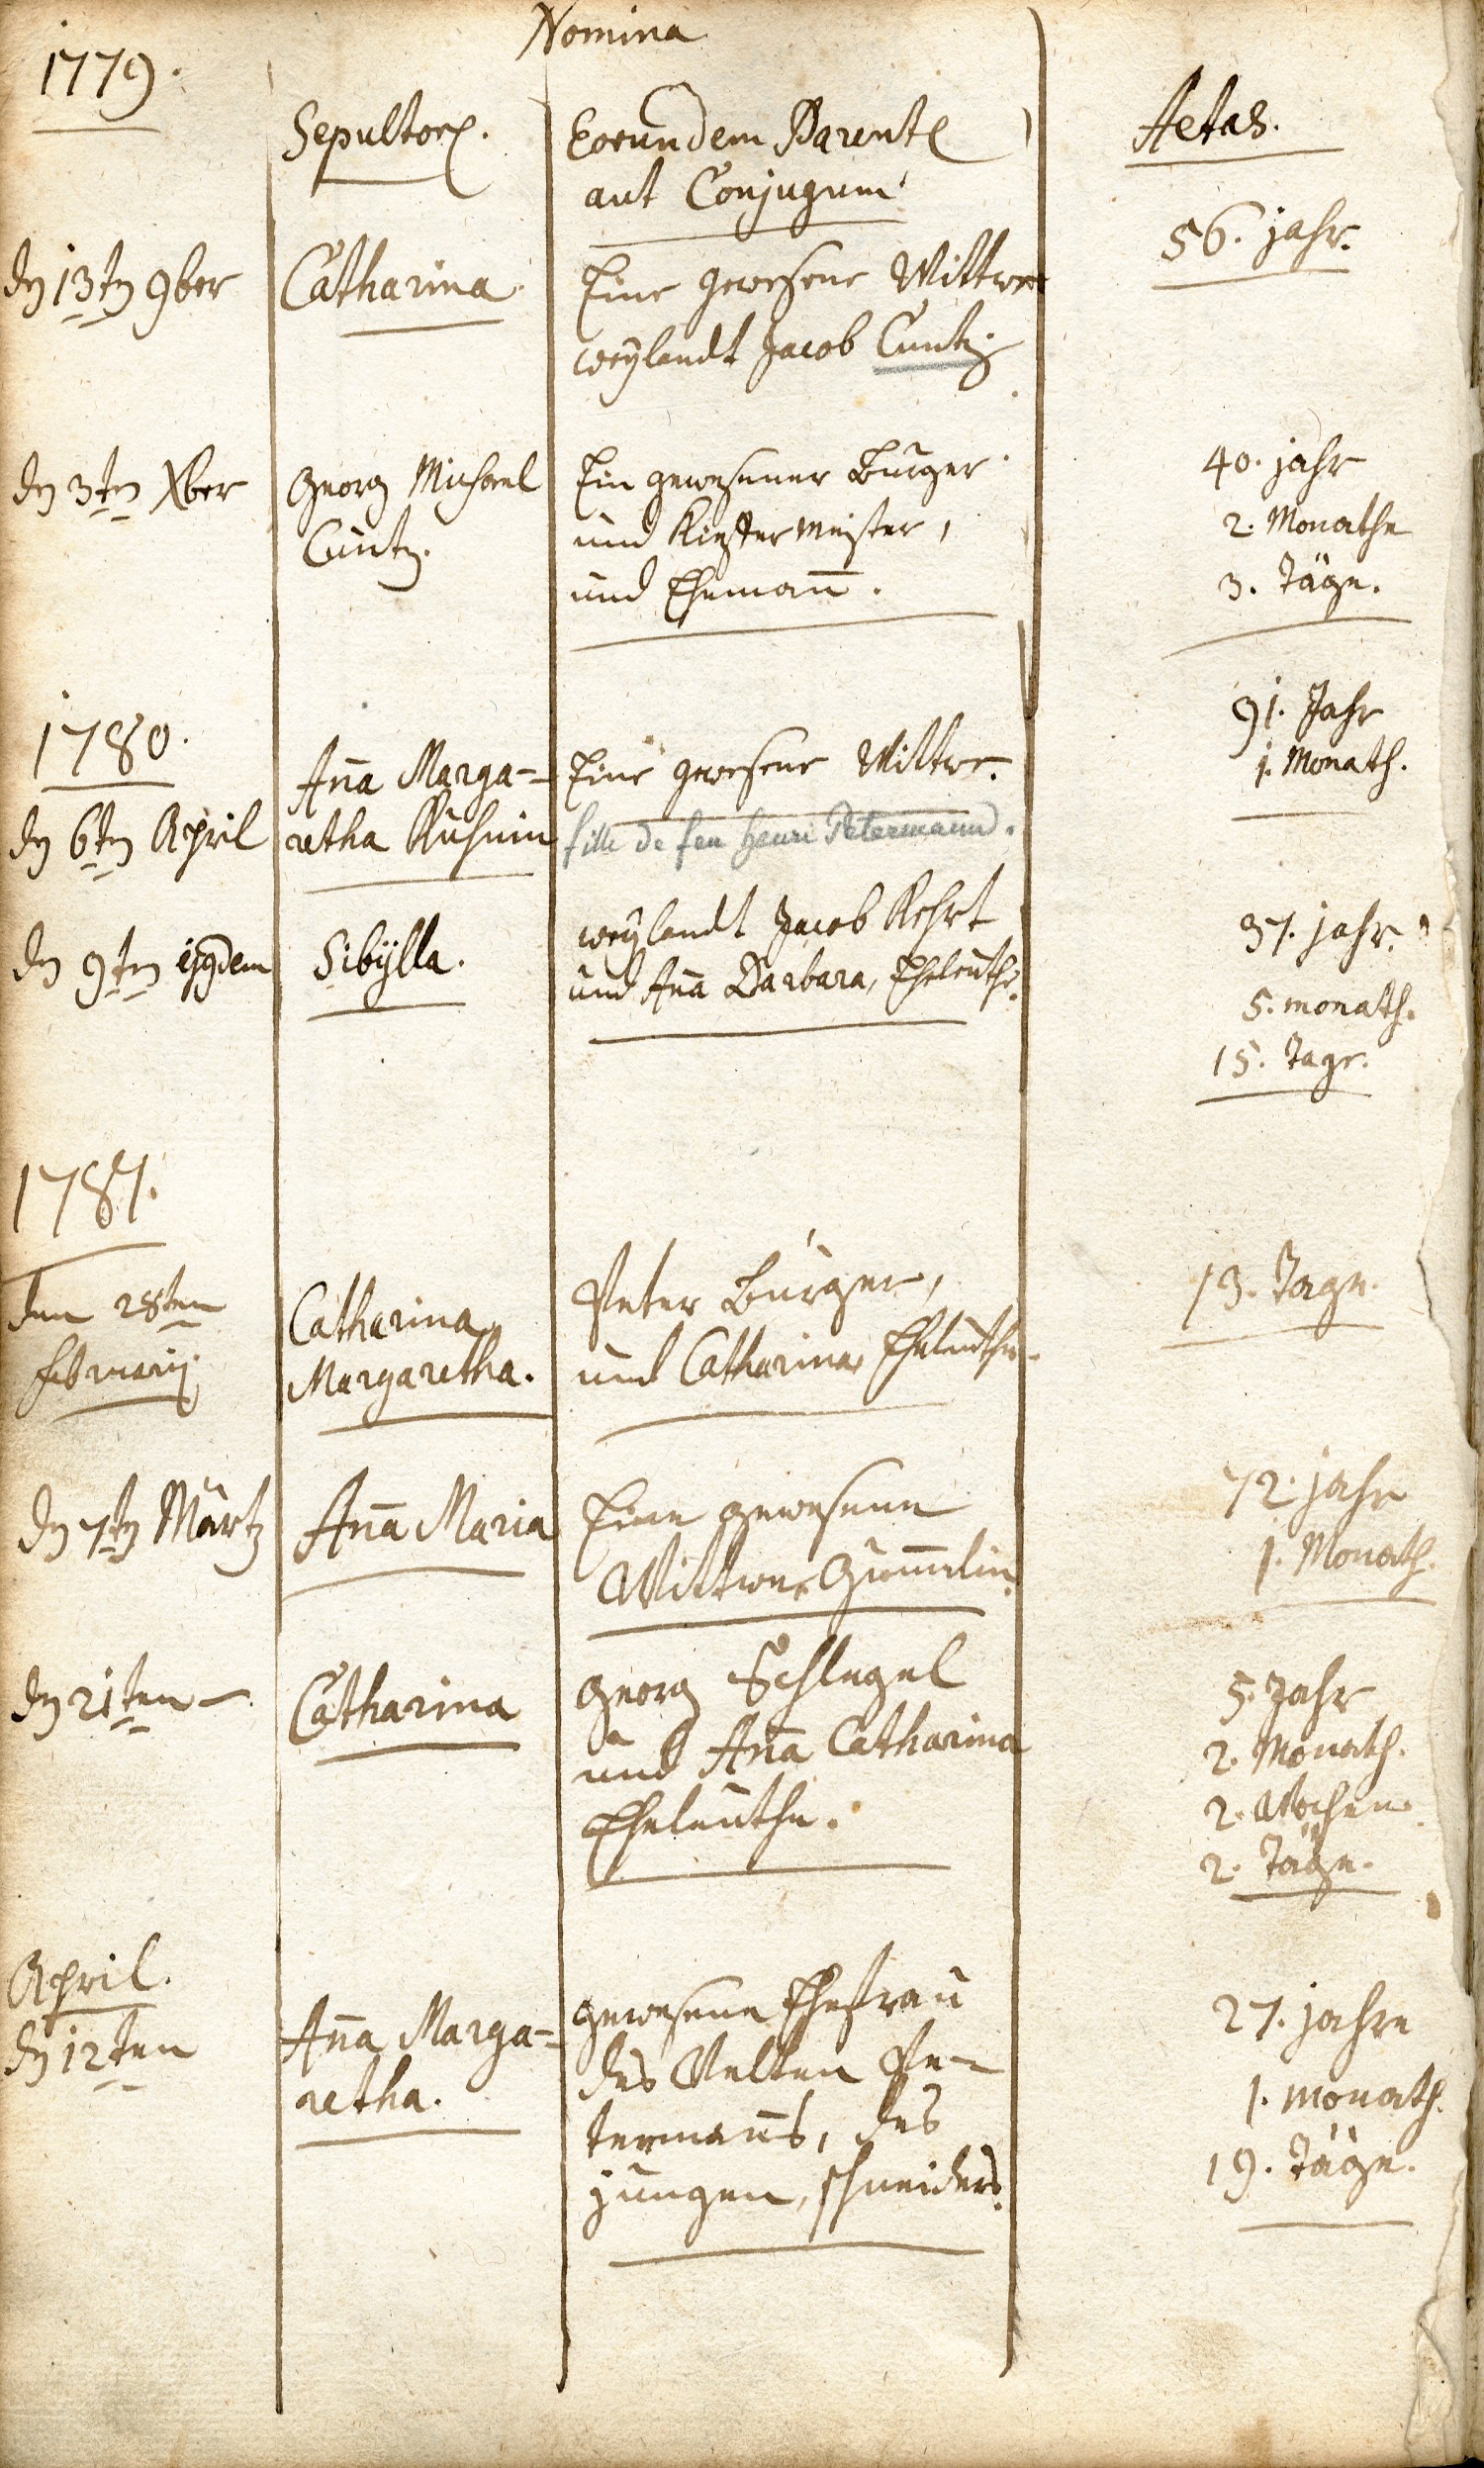 Nomina
1779.
Sepultor.
Eorundem Parent
aut Conjugum
Aetas.
56. jahr.
dn 13tn 9ber
Catharina
Eine gewesene Wittwe
weylandt Jacob Cuntz
dn 3tn Xber
Georg Michael
Cuntz.
Ein gewesener Burger
und meister,
und Ehemañ.
40. jahr
2. Monathe
3. Täge.
1780.
dn 6tn April
Aña Marga-
retha Kuhnin
Eine gewesene Wittwe.
fille de feu henri Petermann.
91. Jahr
1. Monath.
dn 9tn ejusdem
Sibÿlla.
weylandt Jacob Kehrt
und Aña Barbara, Eheleuthe.
37. jahr.
5. monath.
15. Tage.
1781.
den 28ten
februarij.
Catharina
Margaretha.
Peter Burger,
und Catharina Eheleuthe.
13. Tage.
dn 7tn Märtz
Aña Maria
Eine gewesene
Wittwe
72. jahr
1. Monath.
dn 21ten -
Catharina
Georg Schlegel
und Aña Catharina
Eheleuthe.
5. Jahr
2. Monath.
2. Wochen.
2. Täge.
April.
dn 12ten
Aña Marga-
retha.
gewesene Ehefrau
des Velten Pe-
termañs, des
jungen, schneiders.
27. jahre
1. monath.
19. Täge.